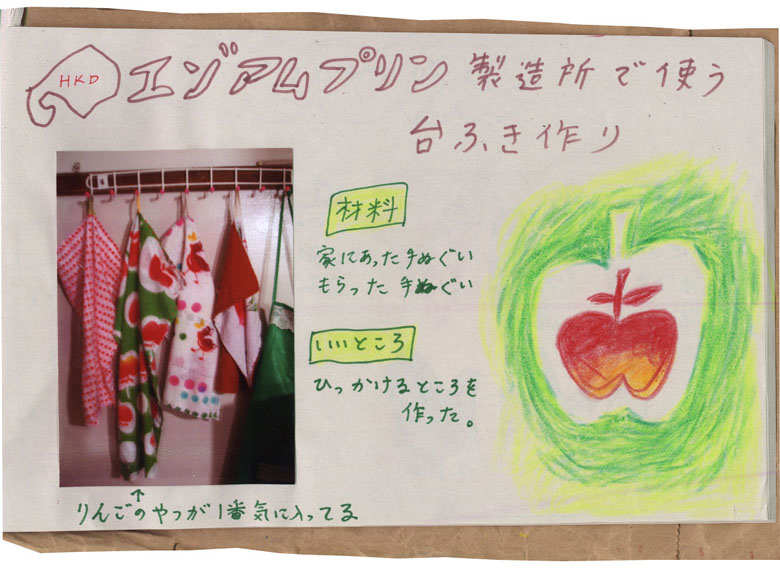 HKD エゾアムプリン製造所で使う
台ふき作り
材料
家にあった手ぬぐい
もらった手ぬぐい
いいところ
ひっかけるところを
作った。
↑
りんごのやつが1番気に入ってる